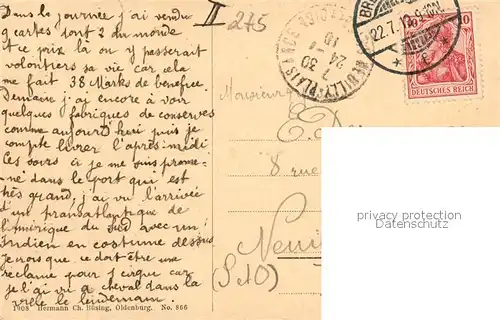 Dans la journée j'ai vendu
9 cartes font 2 du monde
et ce prix là on y passerait
volontiers sa vie car cela
me fait 38 Marks de benefice.
Demain j'ai encore à voir
quelques fabriques de conserves
comme aujourd'hui puis je
compte livrer l'après midi
Ces soirs ci je me suis prome-
né dans le port qui est
très grand, j'ai vu l'arrivée
d'un transatlantique de
l'amérique du Sud avec un
Indien en costume dessus
Je crois que ce doit être une
réclame pour 1 cirque car
je l'ai vu à cheval dans la
ville le lendemain.
1908 Hermann Ch. Büsing, Oldenburg. No. 866
II 275
22.7.12.9-10N
10
DEUTSCHES REICH
NEUILLY-PLAISANCE
7 30
24 - 7
Monsieur
8 rue
Neui
(S et O)
privacy protection
Datenschutz